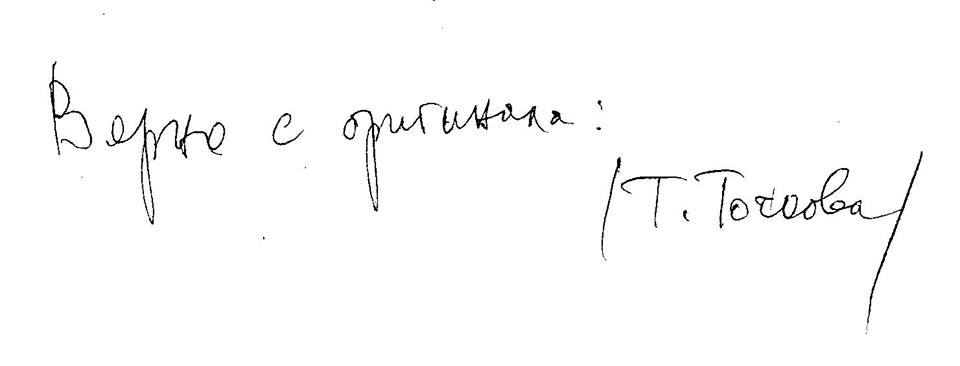 Вярно с оригинала:
/Т. Точкова/